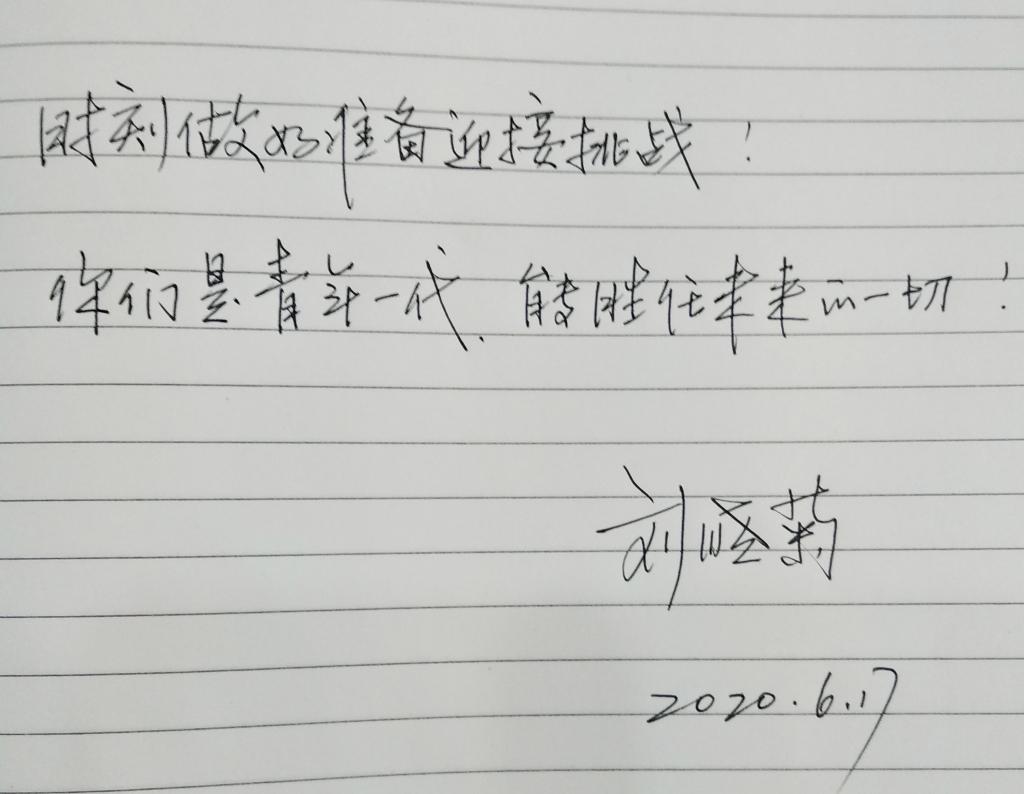 时刻做好准备迎接挑战！
你们是青年一代,能胜任未来的一切！
刘 菊
2020.6.17